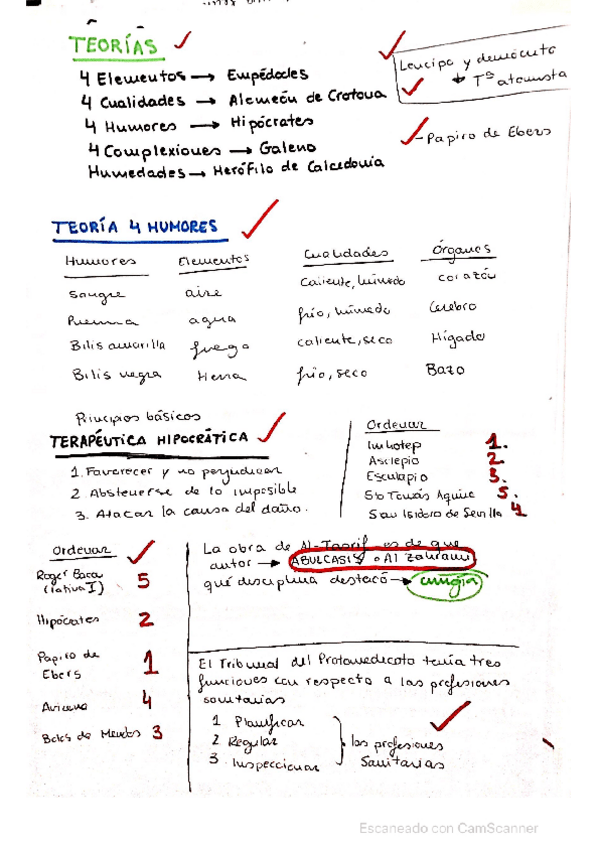 TEORÍAS
4 Elementos → Empédocles
4 Cualidades → Alcmeón de Crotona
4 Humores → Hipócrates
4 Complexiones → Galeno
Humedades → Herófilo de Calcedonia
Leucipo y demócrito
Tª atomista
- Papiro de Ebers
TEORÍA 4 HUMORES
Humores Elementos Cualidades Órganos
Sangre aire Caliente, húmedo corazón
Pneuma agua frío, húmedo Cerebro
Bilis amarilla fuego caliente, seco Hígado
Bilis negra tierra frío, seco Bazo
Principios básicos
TERAPÉUTICA HIPOCRÁTICA
1. Favorecer y no perjudicar
2. Abstenerse de lo imposible
3. Atacar la causa del daño.
Ordenar
Imhotep 1.
Asclepio 2.
Esculapio 3.
Sto Tomás Aquino 5.
San Isidoro de Sevilla 4
Ordenar
Roger Baca 5
Hipócrates 2
Papiro de
Ebers 1
Avicena 4
Bolos de Mendes 3
La obra de Al-Tasrif es de que
autor → ABULCASIS o Al Zahrawi
qué disciplina destacó → cirugía
El Tribunal del Protomedicato tenía tres
funciones con respecto a las profesiones
sanitarias
1 Planificar
2 Regular
3 Inspeccionar
las profesiones
Sanitarias
Escaneado con CamScanner